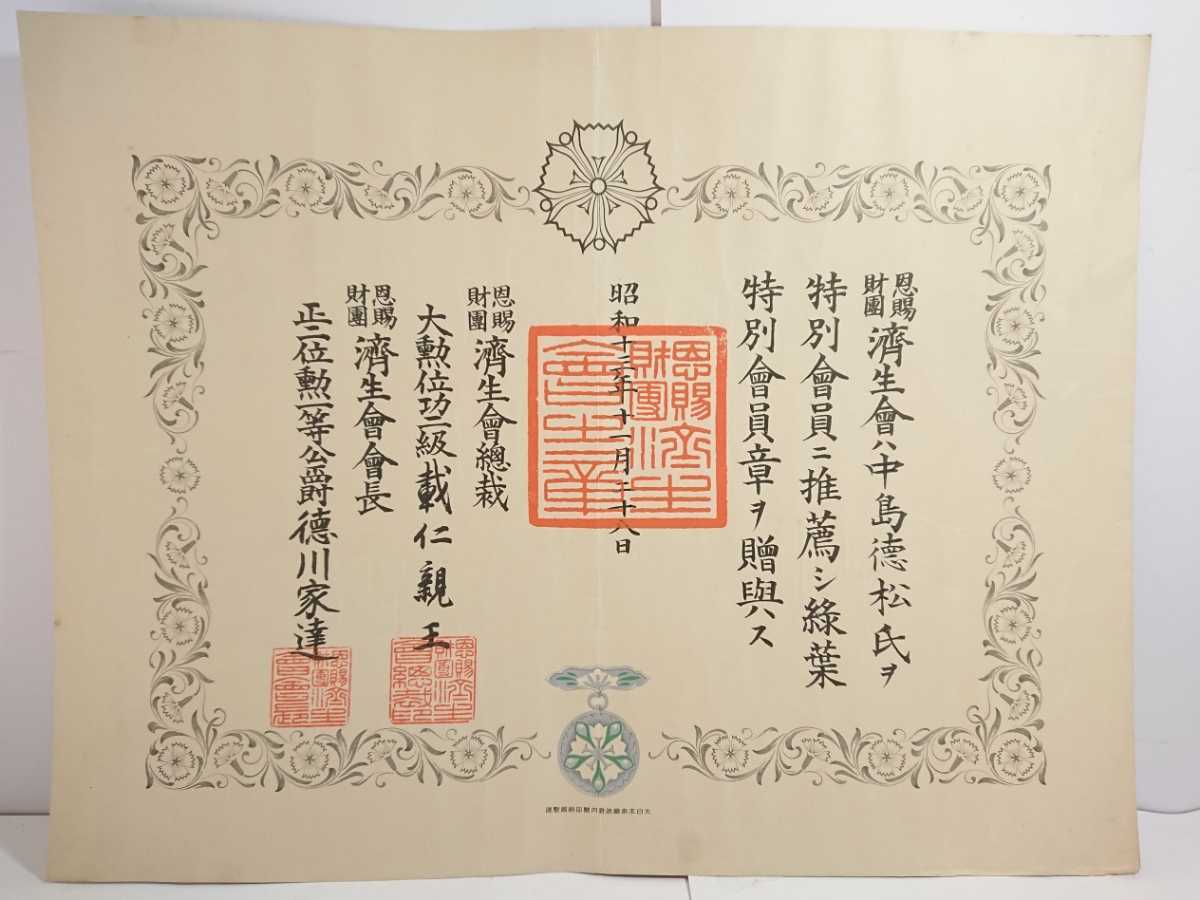 恩賜財團濟生會ハ中島德松氏ヲ
特別會員ニ推薦シ綠葉
特別會員章ヲ贈與ス
昭和十三年十一月二十八日
恩賜財團濟生會總裁
大勲位功二級載仁親王
恩賜財團濟生會會長
正二位勲一等公爵德川家達
恩賜財團濟生會之章
恩賜財團濟生會總裁印